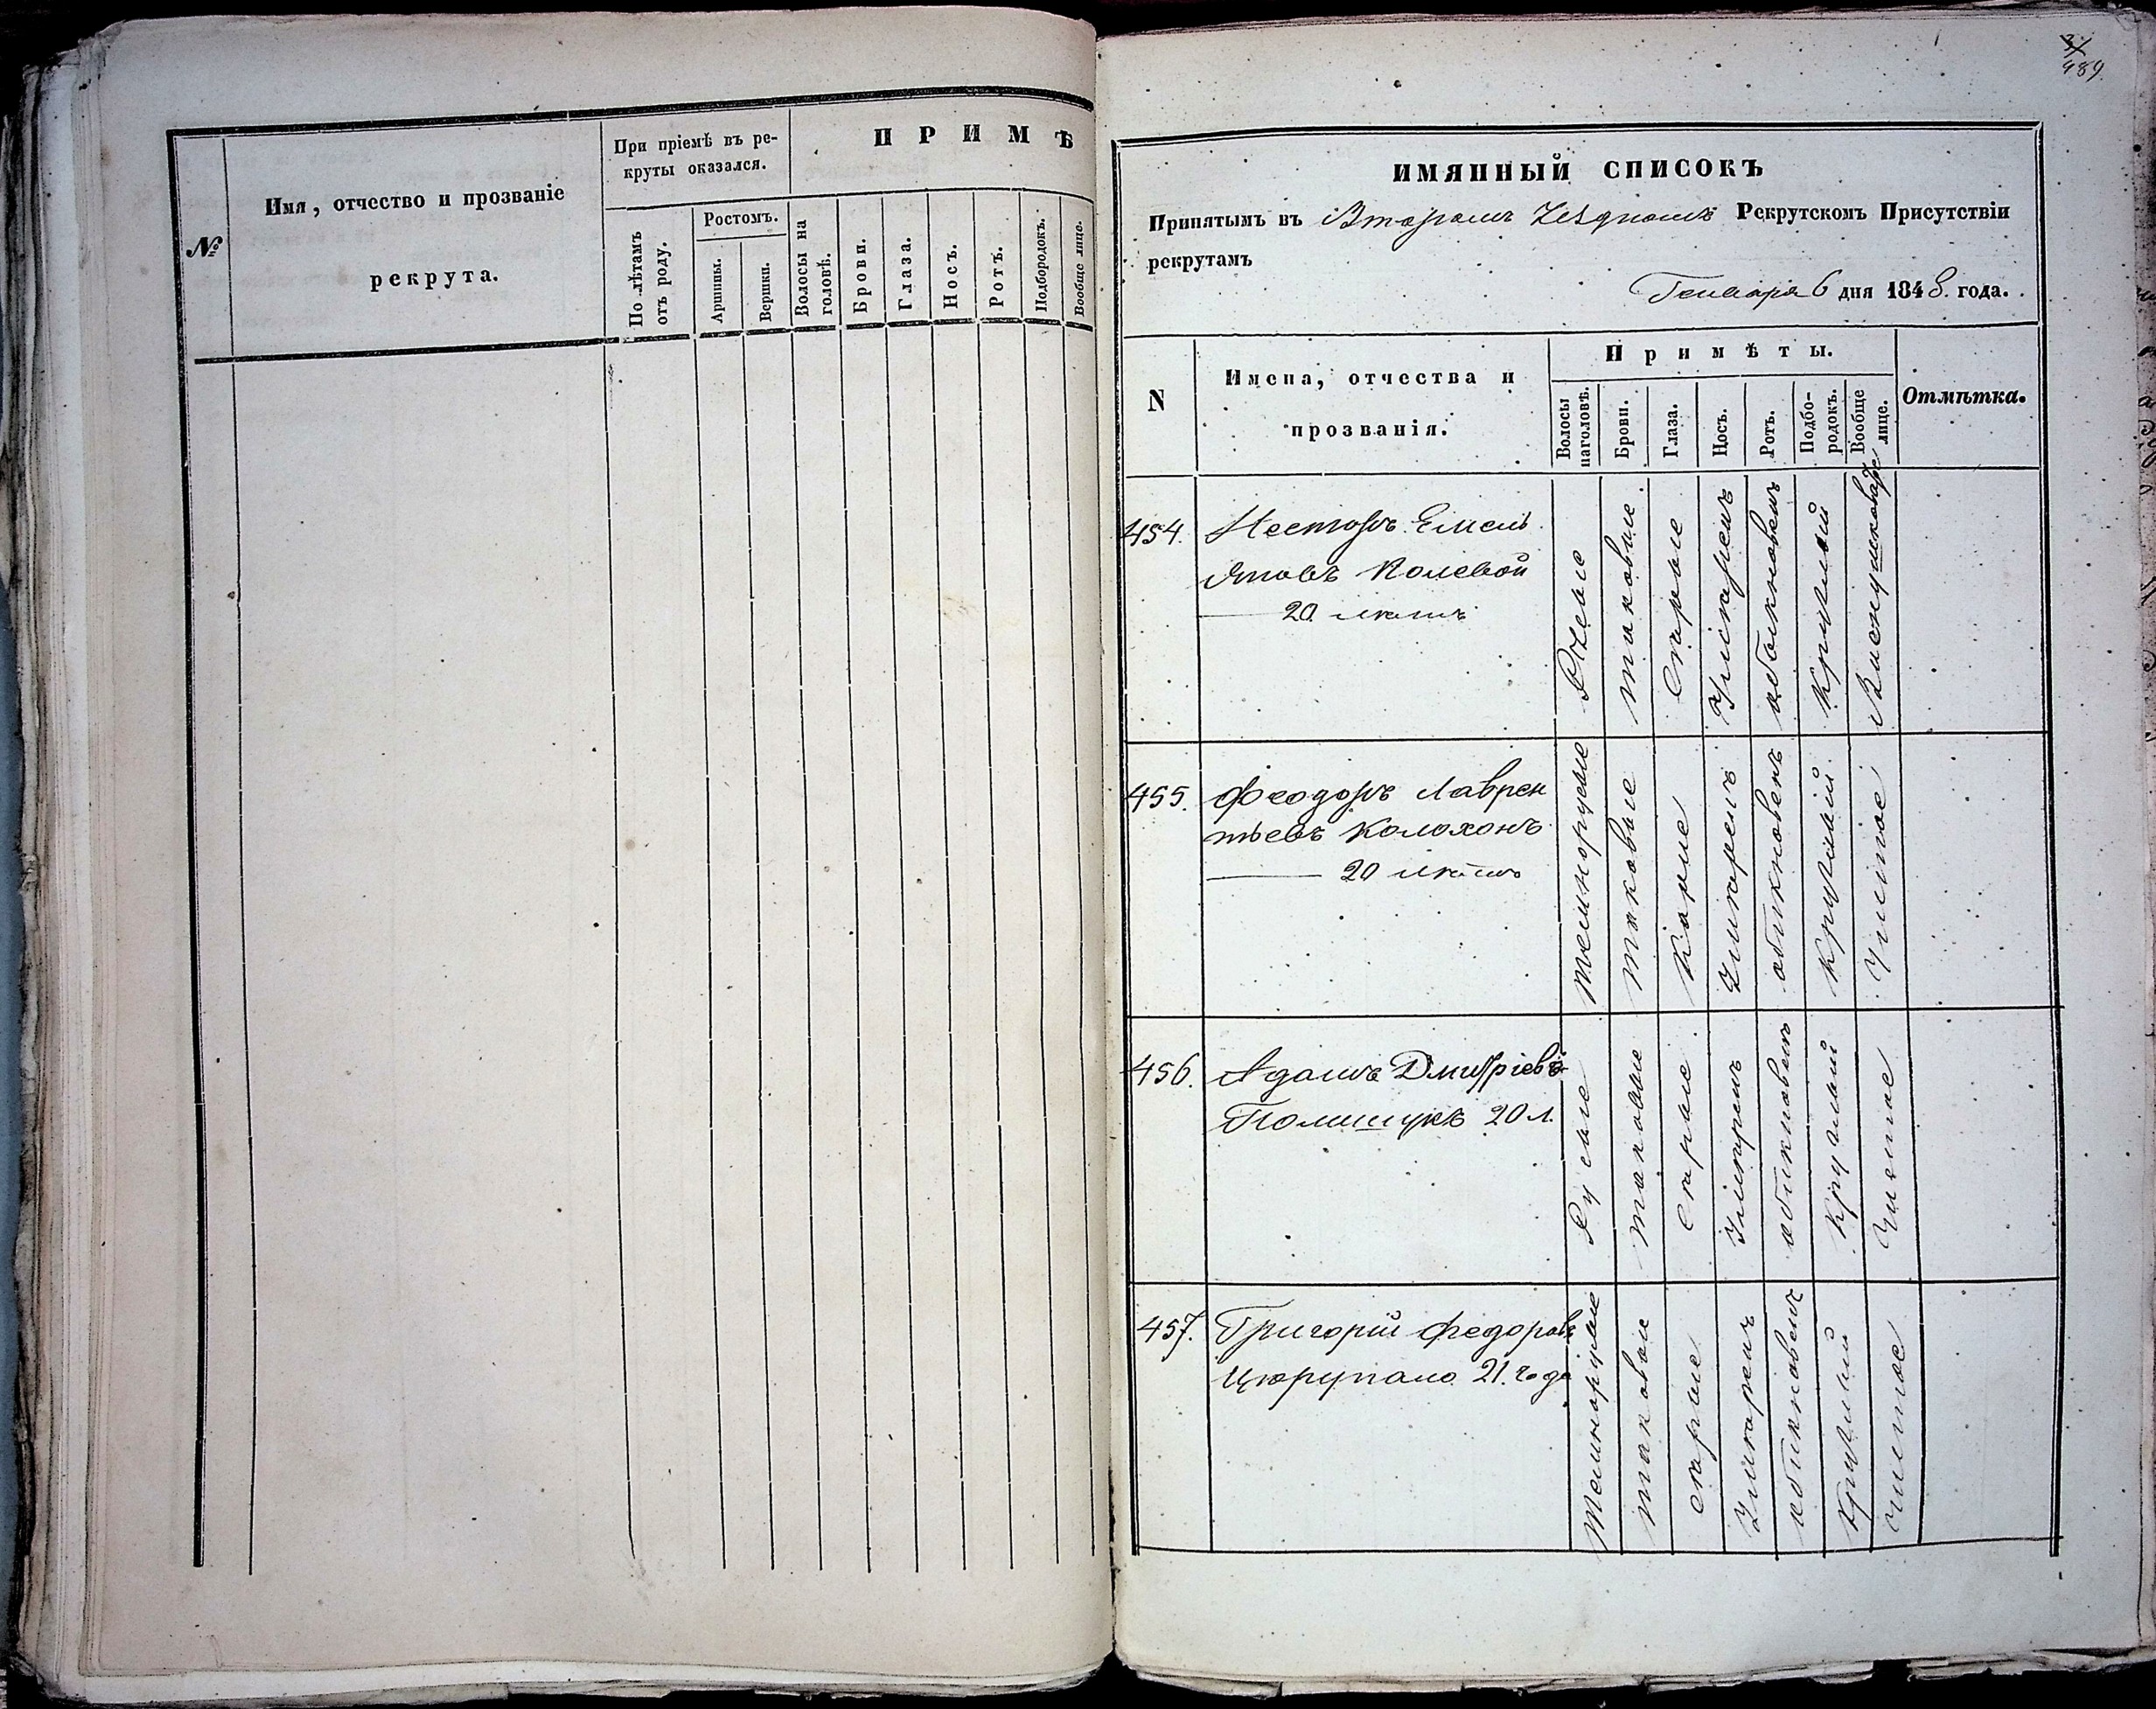 При пріемѣ въ ре-
круты оказался.
П Р И М Ѣ
№
Имя, отчество и прозваніе
рекрута.
По лѣтамъ
отъ роду.
Ростомъ.
Аршины.
Вершки.
Волосы на
головѣ.
Брови.
Глаза.
Носъ.
Ротъ.
Подбородокъ.
Вообще лице.
489
ИМЯННЫЙ СПИСОКЪ
Принятымъ въ Второмъ Уѣздномъ Рекрутскомъ Присутствіи
рекрутамъ
Генваря 6 дня 1848. года.
N
Имена, отчества и
прозванія.
Примѣты.
Волосы
наголовѣ.
Брови.
Глаза.
Носъ.
Ротъ.
Подбо-
родокъ.
Вообще
лице.
Отмѣтка.
454. Несторъ Емель
яновъ Колевой
20 лѣтъ
Русые
таковые
Сѣрые
Умѣренъ
обыкновенъ
Круглый
455. Феодоръ Лаврен
тьевъ Колохонъ
20 лѣтъ
темнорусые
таковые
Карие
Умѣренъ
обыкновенъ
Круглый
Чистое
456. Адамъ Дмитріевъ
Полищукъ 20 л.
Русые
таковые
Сѣрые
Умѣренъ
обыкновенъ
Круглый
Чистое
457. Григорій Федоровъ
Цюрупало 21. года
темнорусые
таковые
сѣрые
Умѣренъ
обыкновенъ
Круглый
чистое